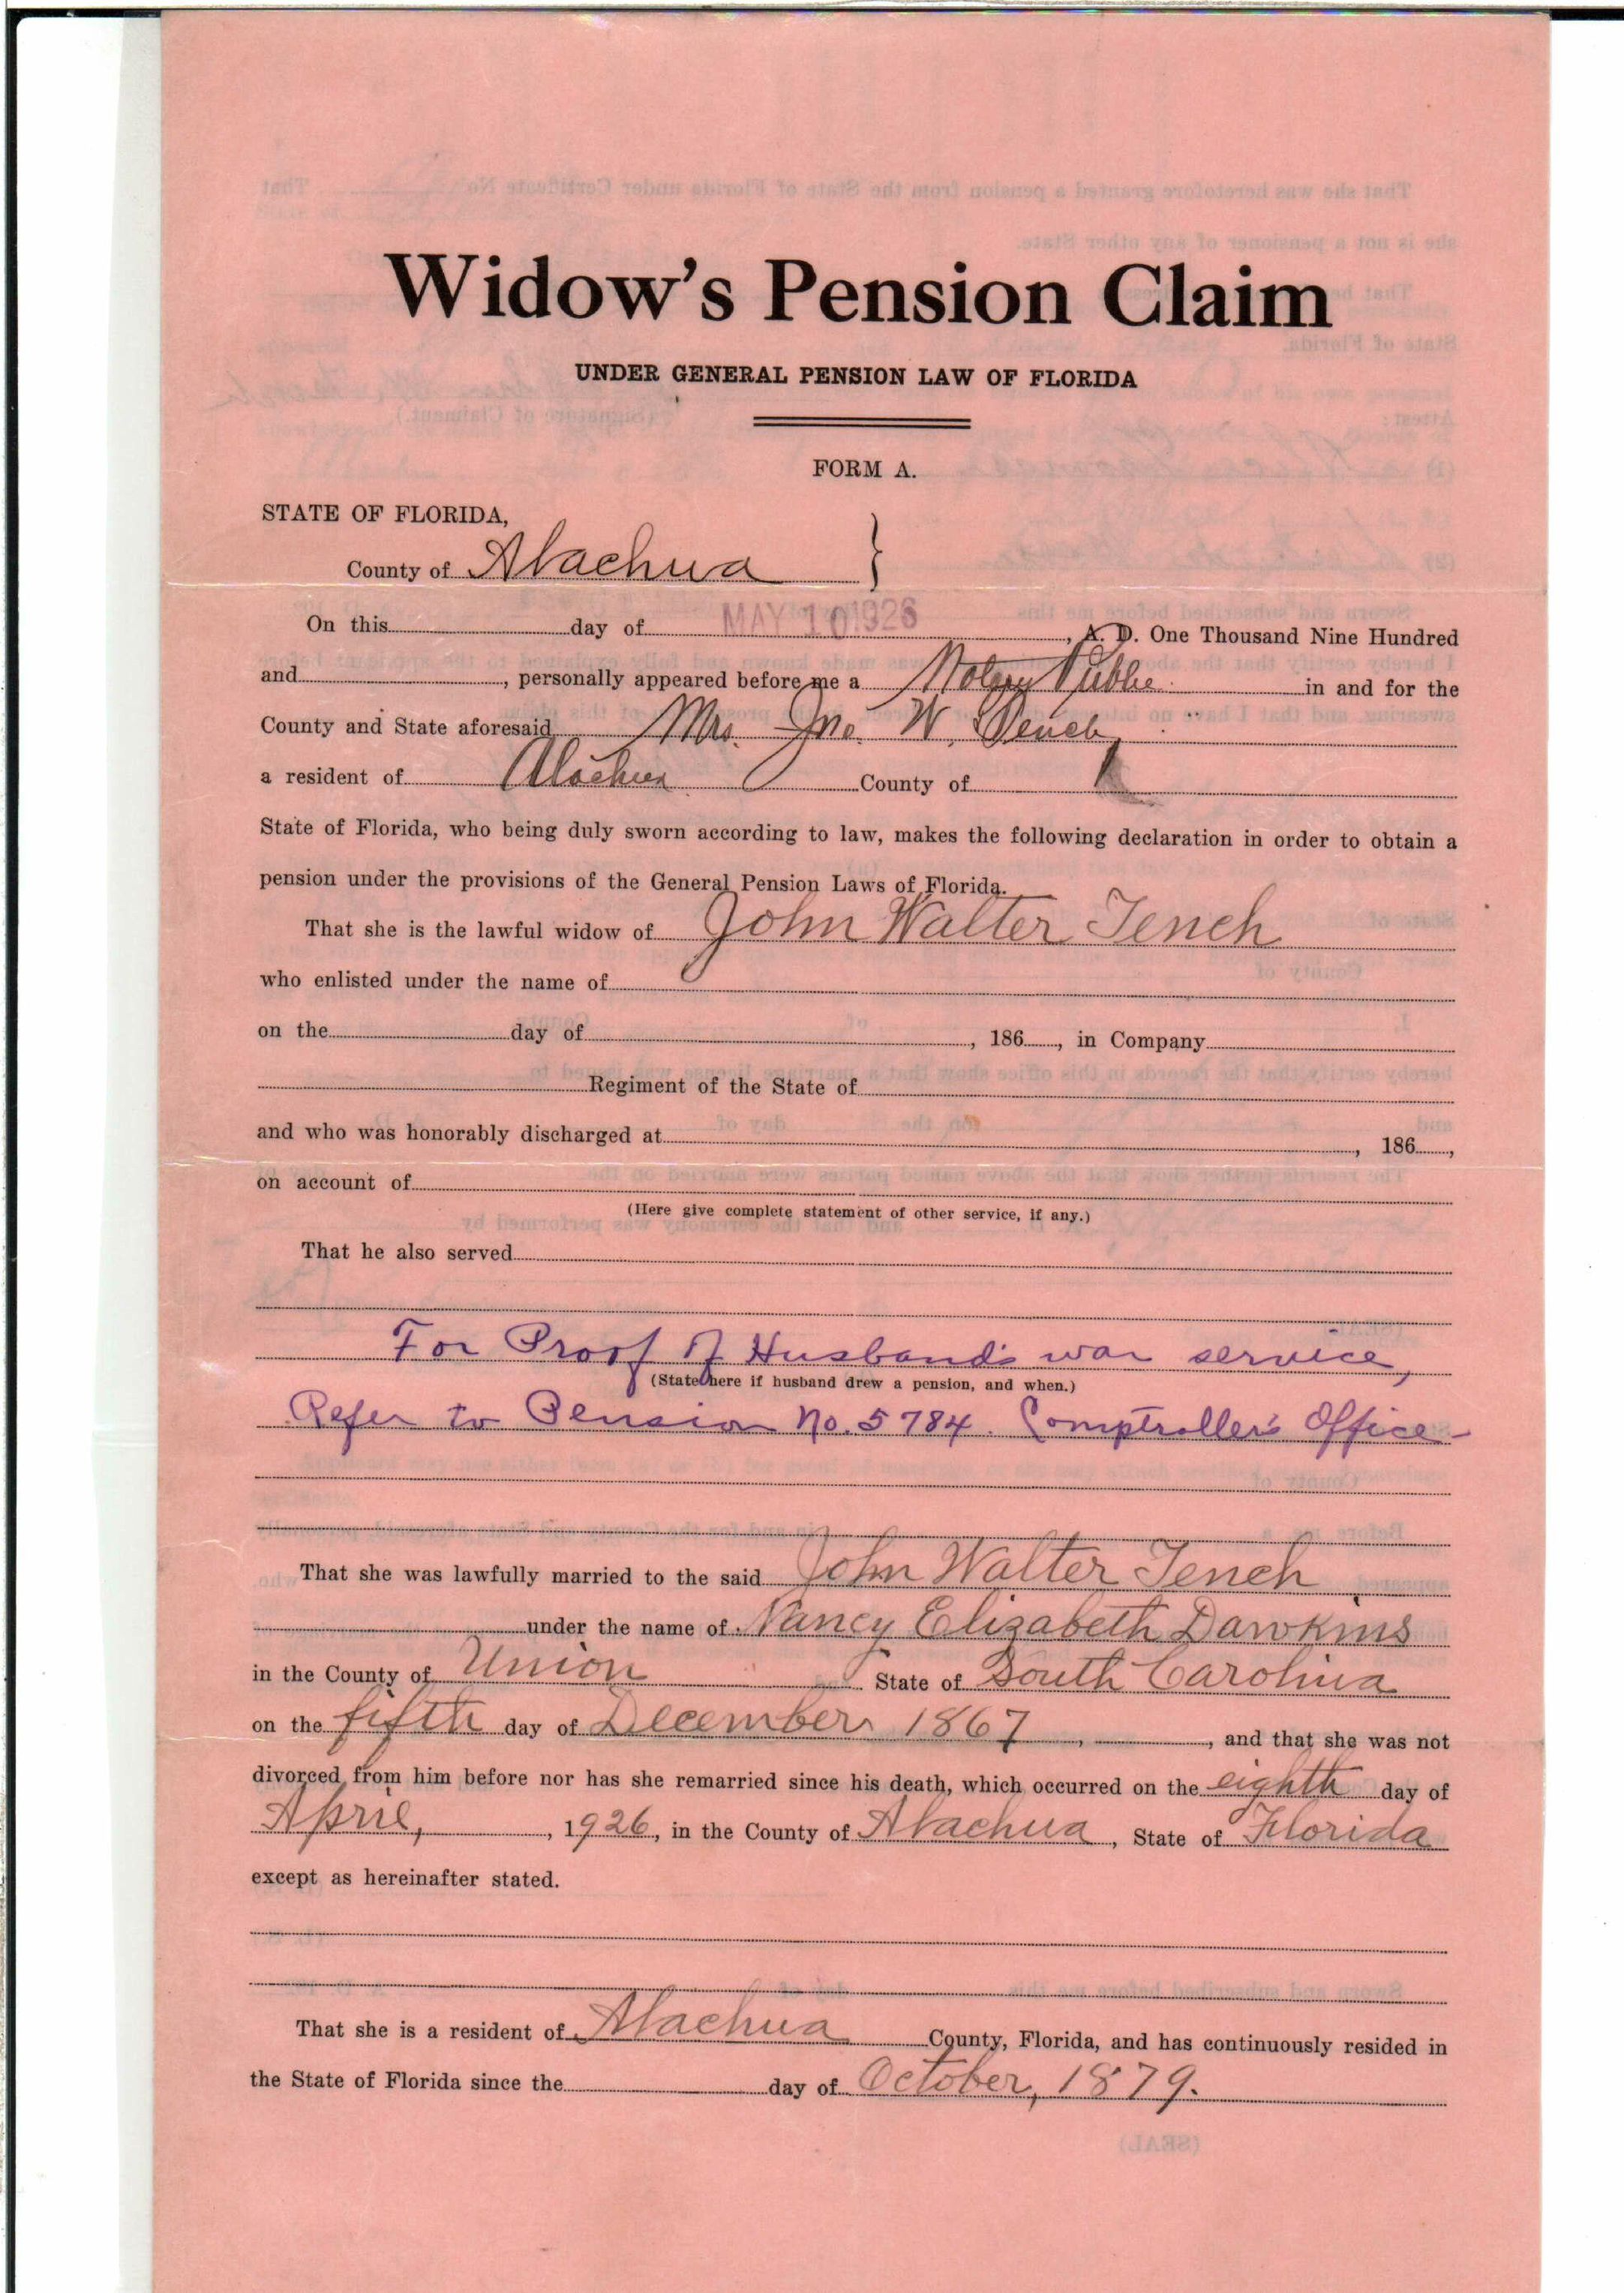 Widow's Pension Claim
UNDER GENERAL PENSION LAW OF FLORIDA
FORM A.
STATE OF FLORIDA,
County of Alachua }
On this day of MAY 10 1926, A. D. One Thousand Nine Hundred
and , personally appeared before me a Notary Public in and for the
County and State aforesaid Mrs. Jno. W. Tench,
a resident of Alachua County of
State of Florida, who being duly sworn according to law, makes the following declaration in order to obtain a
pension under the provisions of the General Pension Laws of Florida.
That she is the lawful widow of John Walter Tench
who enlisted under the name of
on the day of , 186 , in Company
Regiment of the State of
and who was honorably discharged at , 186 ,
on account of
(Here give complete statement of other service, if any.)
That he also served
For Proof of Husband's war service,
(State here if husband drew a pension, and when.)
Refer to Pension No. 5784. Comptroller's Office-
That she was lawfully married to the said John Walter Tench
under the name of Nancy Elizabeth Dawkins
in the County of Union State of South Carolina
on the fifth day of December 1867, , and that she was not
divorced from him before nor has she remarried since his death, which occurred on the eighth day of
April, , 1926, in the County of Alachua, State of Florida
except as hereinafter stated.
That she is a resident of Alachua County, Florida, and has continuously resided in
the State of Florida since the day of October, 1879.